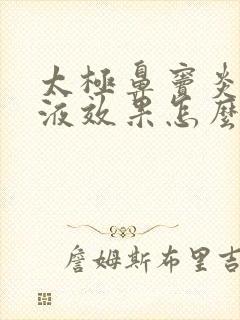 太極鼻竇炎
液效果怎麼
詹姆斯布里吉